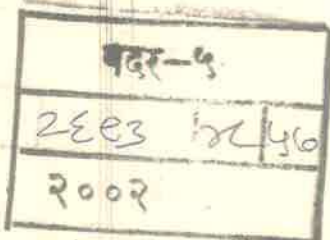 बदर-५
२६९३ ५७
२००२